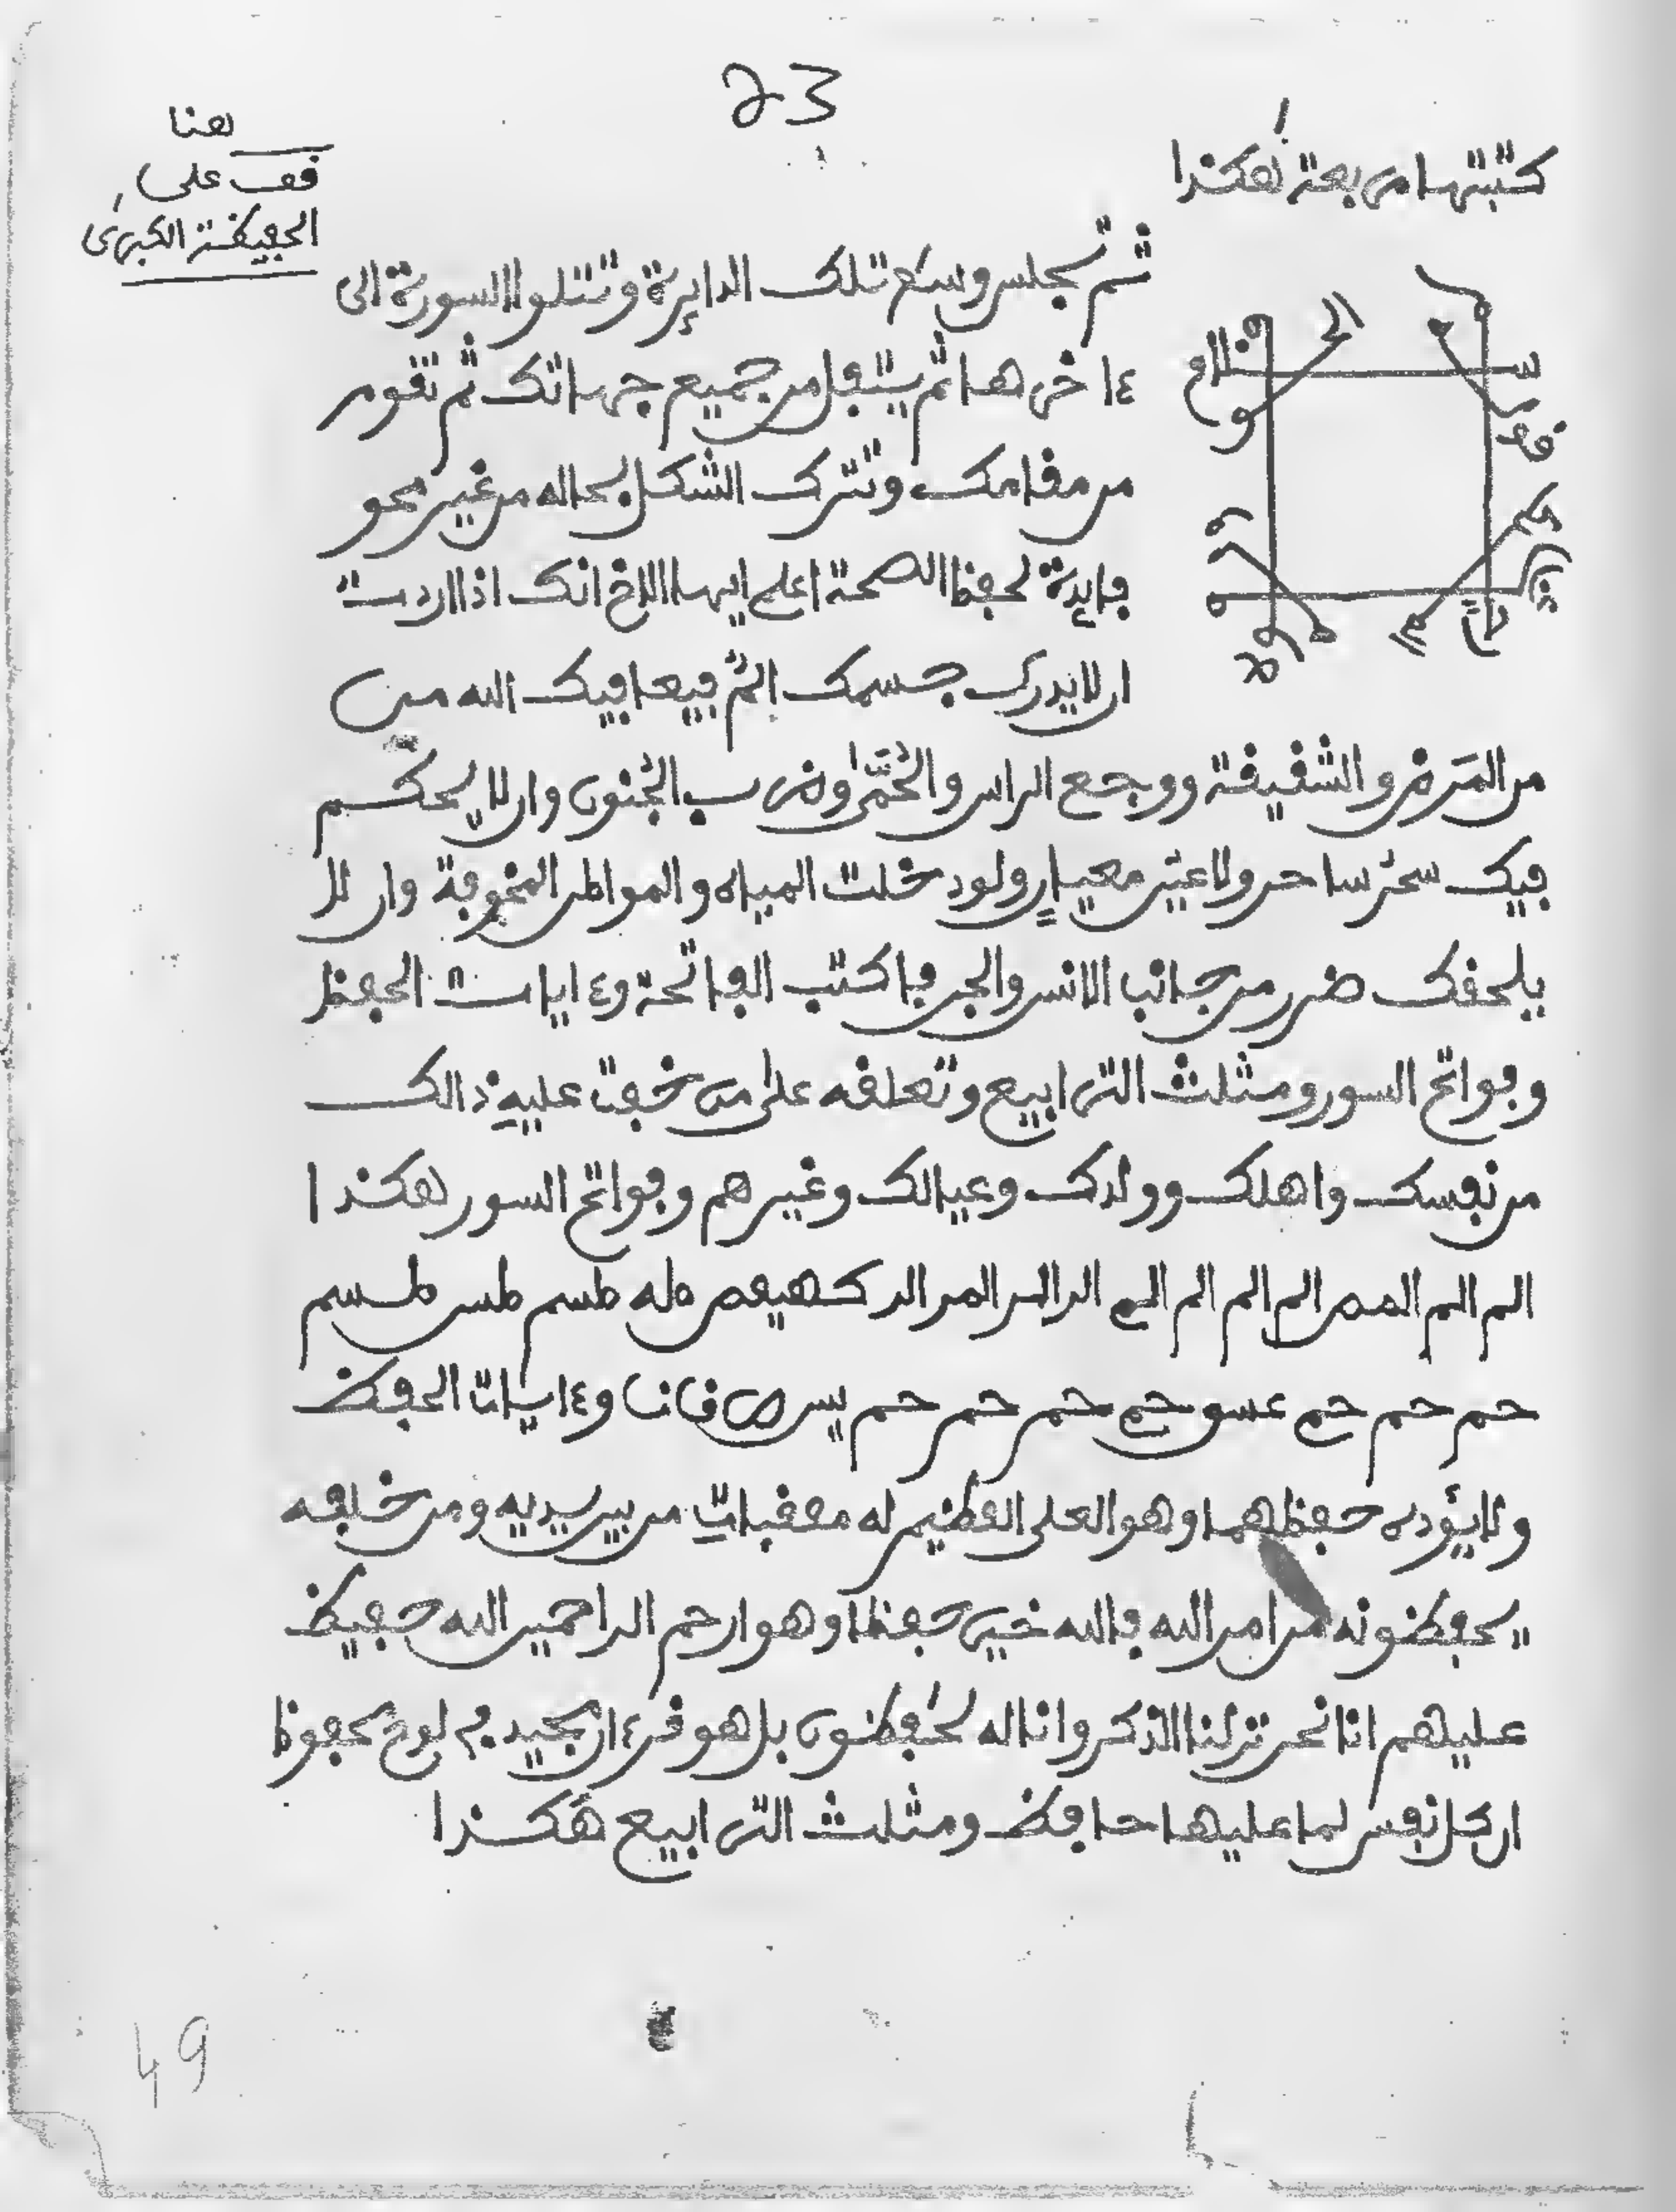 23
هنا
فف على
الحفيفة الكبرى
كتبتها مربعة هكذا
ثم تجلس وسع تلك الدايرة وتتلوا السورة الى
ءاخرها ثم يستقبل من جميع جهاتك ثم تقوم
من مقامك وتترك الشكل بحاله من غير محو
فايدة لحفظ الصحة اعلم ايها الاخ انك اذا اردت
ان لا يدرك جسمك الم فيعافيك الله من
من المرض والشقيقة ووجع الراس والحمى وضرب الجنون وان لا يحكم
فيك سحر ساحر ولا عين معيان ولو دخلت المياه والمواطن المخوفة وان لا
يلحقك ضرر من جانب الانس والجن فاكتب الفاتحة وءايات الحفظ
وفواتح السور ومثلث الترابيع وتعلقه على من خفت عليه ذالك
من نفسك واهلك وولدك وعيالك وغيرهم وفواتح السور هكذا
الم الم المص الم الم الم الم الر الر المر الر كهيعص طه طسم طس طسم
حم حم حم عسق حم حم حم حم يس ص ق ن وءايات الحفظ
ولا يؤده حفظهما وهو العلى العظيم له معقبات من بين يديه ومن خلفه
يحفظونه من امر الله فالله خير حفظا وهو ارحم الراحمين الله حفيظ
عليهم انا نحن نزلنا الذكر وانا له لحفظون بل هو قرءان مجيد في لوح محفوظ
ان كل نفس لما عليها حافظ ومثلث الترابيع هكذا
49